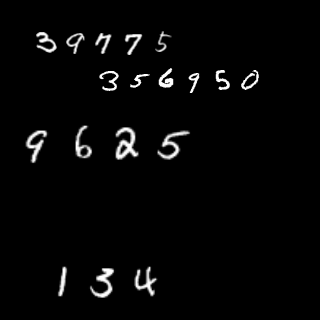 39775
356950
9625
134